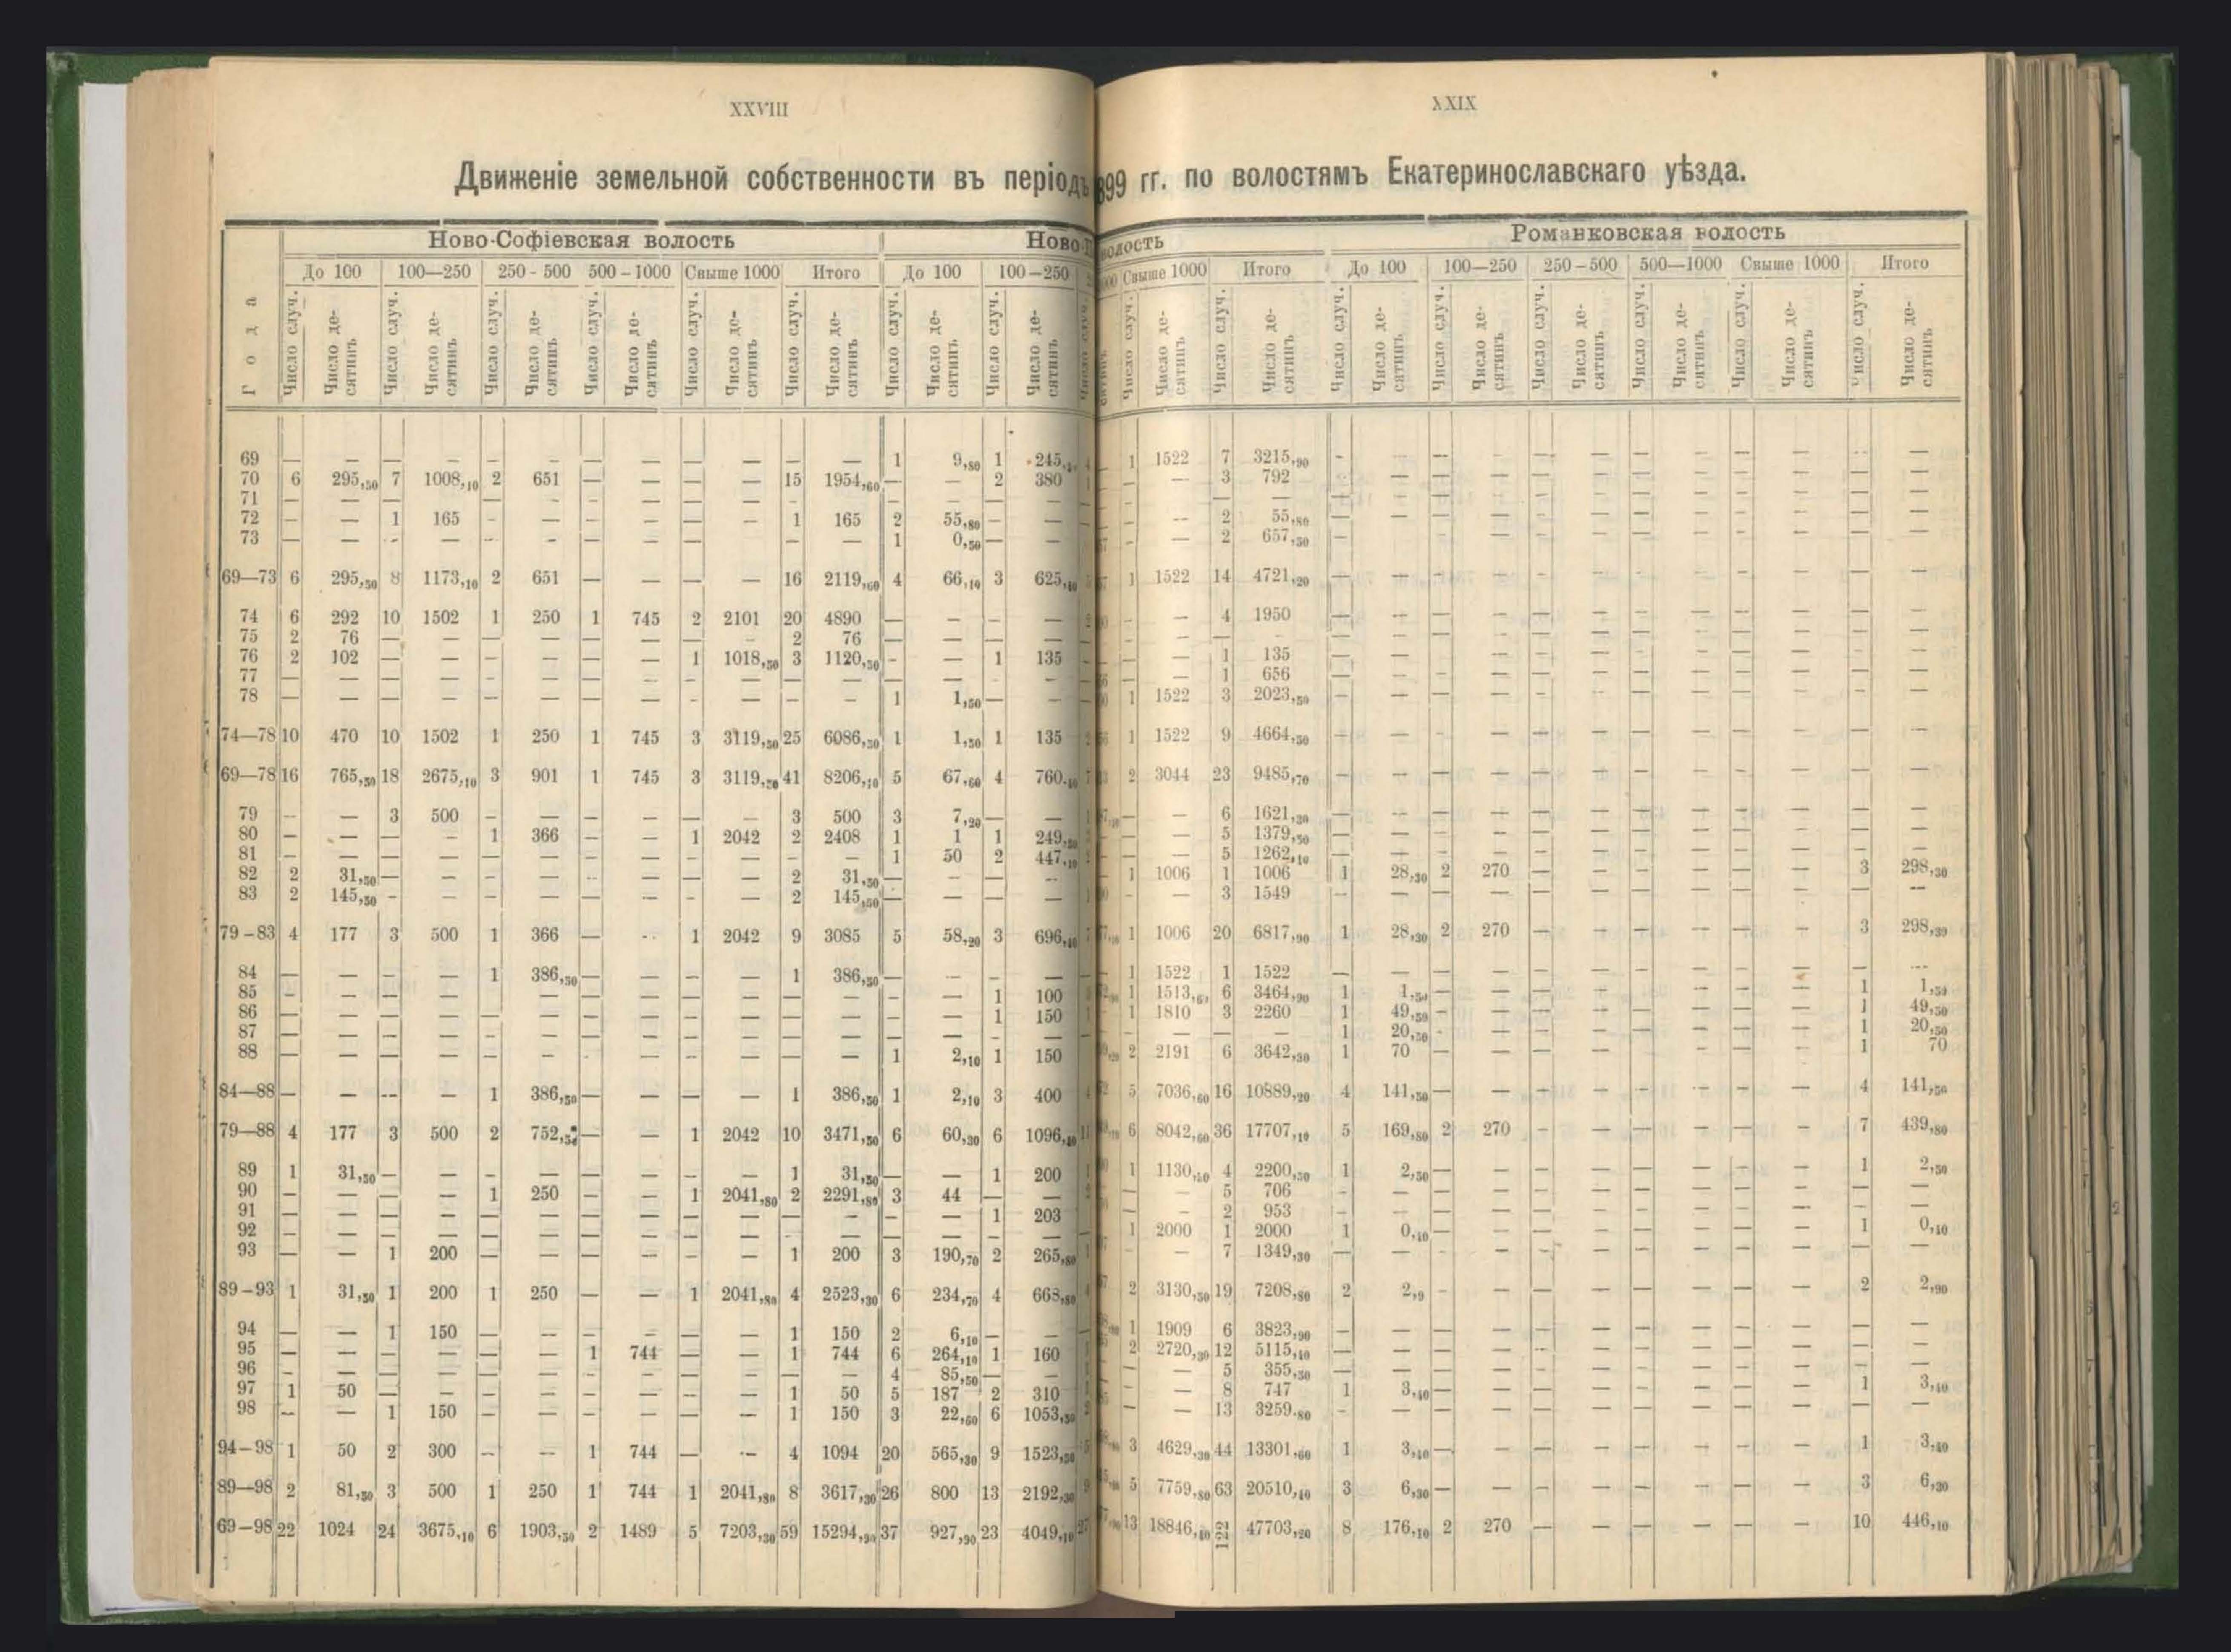 XXVIII
Движеніе земельной собственности въ періодъ
Ново-Софіевская волость Ново
Года До 100 100—250 250-500 500-1000 Свыше 1000 Итого До 100 100-250
Число случ. Число десятинъ Число случ. Число десятинъ Число случ. Число десятинъ Число случ. Число десятинъ Число случ. Число десятинъ Число случ. Число десятинъ Число случ. Число десятинъ Число случ. Число десятинъ
69 — — — — — — — — — — — — 1 9,80 1 245
70 6 295,50 7 1008,10 2 651 — — — — 15 1954,60 — — 2 380
71 — — — — — — — — — — — — — — — —
72 — — 1 165 — — — — — — 1 165 2 55,80 — —
73 — — — — — — — — — — — — 1 0,50 — —
69—73 6 295,50 8 1173,10 2 651 — — — — 16 2119,60 4 66,10 3 625
74 6 292 10 1502 1 250 1 745 2 2101 20 4890 — — — —
75 2 76 — — — — — — — — 2 76 — — — —
76 2 102 — — — — — — 1 1018,50 3 1120,50 — — 1 135
77 — — — — — — — — — — — — — — — —
78 — — — — — — — — — — — — 1 1,50 — —
74—78 10 470 10 1502 1 250 1 745 3 3119,50 25 6086,50 1 1,50 1 135
69—78 16 765,50 18 2675,10 3 901 1 745 3 3119,50 41 8206,10 5 67,60 4 760
79 — — 3 500 — — — — — — 3 500 3 7,20 — —
80 — — — — 1 366 — — 1 2042 2 2408 1 1 1 249
81 — — — — — — — — — — — — 1 50 2 447
82 2 31,50 — — — — — — — — 2 31,50 — — — —
83 2 145,50 — — — — — — — — 2 145,50 — — — —
79-83 4 177 3 500 1 366 — — 1 2042 9 3085 5 58,20 3 696
84 — — — — 1 386,50 — — — — 1 386,50 — — — —
85 — — — — — — — — — — — — — — 1 100
86 — — — — — — — — — — — — — — 1 150
87 — — — — — — — — — — — — — — — —
88 — — — — — — — — — — — — 1 2,10 1 150
84—88 — — — — 1 386,50 — — — — 1 386,50 1 2,10 3 400
79—88 4 177 3 500 2 752 — — 1 2042 10 3471,50 6 60,30 6 1096
89 1 31,50 — — — — — — — — 1 31,50 — — 1 200
90 — — — — 1 250 — — 1 2041,80 2 2291,80 3 44 — —
91 — — — — — — — — — — — — — — 1 203
92 — — — — — — — — — — — — — — — —
93 — — 1 200 — — — — — — 1 200 3 190,70 2 265,80
89-93 1 31,50 1 200 1 250 — — 1 2041,80 4 2523,30 6 234,70 4 668,80
94 — — 1 150 — — — — — — 1 150 2 6,10 — —
95 — — — — — — 1 744 — — 1 744 6 264,10 1 160
96 — — — — — — — — — — — — 4 85,50 — —
97 1 50 — — — — — — — — 1 50 5 187 2 310
98 — — 1 150 — — — — — — 1 150 3 22,60 6 1053,50
94-98 1 50 2 300 — — 1 744 — — 4 1094 20 565,30 9 1523,50
89—98 2 81,50 3 500 1 250 1 744 1 2041,80 8 3617,30 26 800 13 2192,30
69-98 22 1024 24 3675,10 6 1903,50 2 1489 5 7203,30 59 15294,90 37 927,90 23 4049,10
XXIX
899 гг. по волостямъ Екатеринославскаго уѣзда.
волость Романковская волость
Свыше 1000 Итого До 100 100—250 250-500 500—1000 Свыше 1000 Итого
Число случ. Число десятинъ Число случ. Число десятинъ Число случ. Число десятинъ Число случ. Число десятинъ Число случ. Число десятинъ Число случ. Число десятинъ Число случ. Число десятинъ Число случ. Число десятинъ
1 1522 7 3215,90 — — — — — — — — — — — —
— — 3 792 — — — — — — — — — — — —
— — — — — — — — — — — — — — — —
— — 2 55,80 — — — — — — — — — — — —
— — 2 657,50 — — — — — — — — — — — —
1 1522 14 4721,20 — — — — — — — — — — — —
— — 4 1950 — — — — — — — — — — — —
— — — — — — — — — — — — — — — —
— — 1 135 — — — — — — — — — — — —
— — 1 656 — — — — — — — — — — — —
1 1522 3 2023,50 — — — — — — — — — — — —
1 1522 9 4664,50 — — — — — — — — — — — —
2 3044 23 9485,70 — — — — — — — — — — — —
— — 6 1621,30 — — — — — — — — — — — —
— — 5 1379,50 — — — — — — — — — — — —
— — 5 1262,10 — — — — — — — — — — — —
1 1006 1 1006 1 28,30 2 270 — — — — — — 3 298,30
— — 3 1549 — — — — — — — — — — — —
1 1006 20 6817,90 1 28,30 2 270 — — — — — — 3 298,30
1 1522 1 1522 — — — — — — — — — — — —
1 1513,6 6 3464,90 1 1,50 — — — — — — — — 1 1,50
1 1810 3 2260 1 49,50 — — — — — — — — 1 49,50
— — — — 1 20,50 — — — — — — — — 1 20,50
2 2191 6 3642,30 1 70 — — — — — — — — 1 70
5 7036,60 16 10889,20 4 141,50 — — — — — — — — 4 141,50
6 8042,60 36 17707,10 5 169,80 2 270 — — — — — — 7 439,80
1 1130,50 4 2200,50 1 2,50 — — — — — — — — 1 2,50
— — 5 706 — — — — — — — — — — — —
— — 2 953 — — — — — — — — — — — —
1 2000 1 2000 1 0,40 — — — — — — — — 1 0,40
— — 7 1349,30 — — — — — — — — — — — —
2 3130,50 19 7208,80 2 2,9 — — — — — — — — 2 2,90
1 1909 6 3823,90 — — — — — — — — — — — —
2 2720,30 12 5115,40 — — — — — — — — — — — —
— — 5 355,50 — — — — — — — — — — — —
— — 8 747 1 3,40 — — — — — — — — 1 3,40
— — 13 3259,80 — — — — — — — — — — — —
3 4629,30 44 13301,60 1 3,40 — — — — — — — — 1 3,40
5 7759,80 63 20510,40 3 6,30 — — — — — — — — 3 6,30
13 18846,40 122 47703,20 8 176,10 2 270 — — — — — — 10 446,10